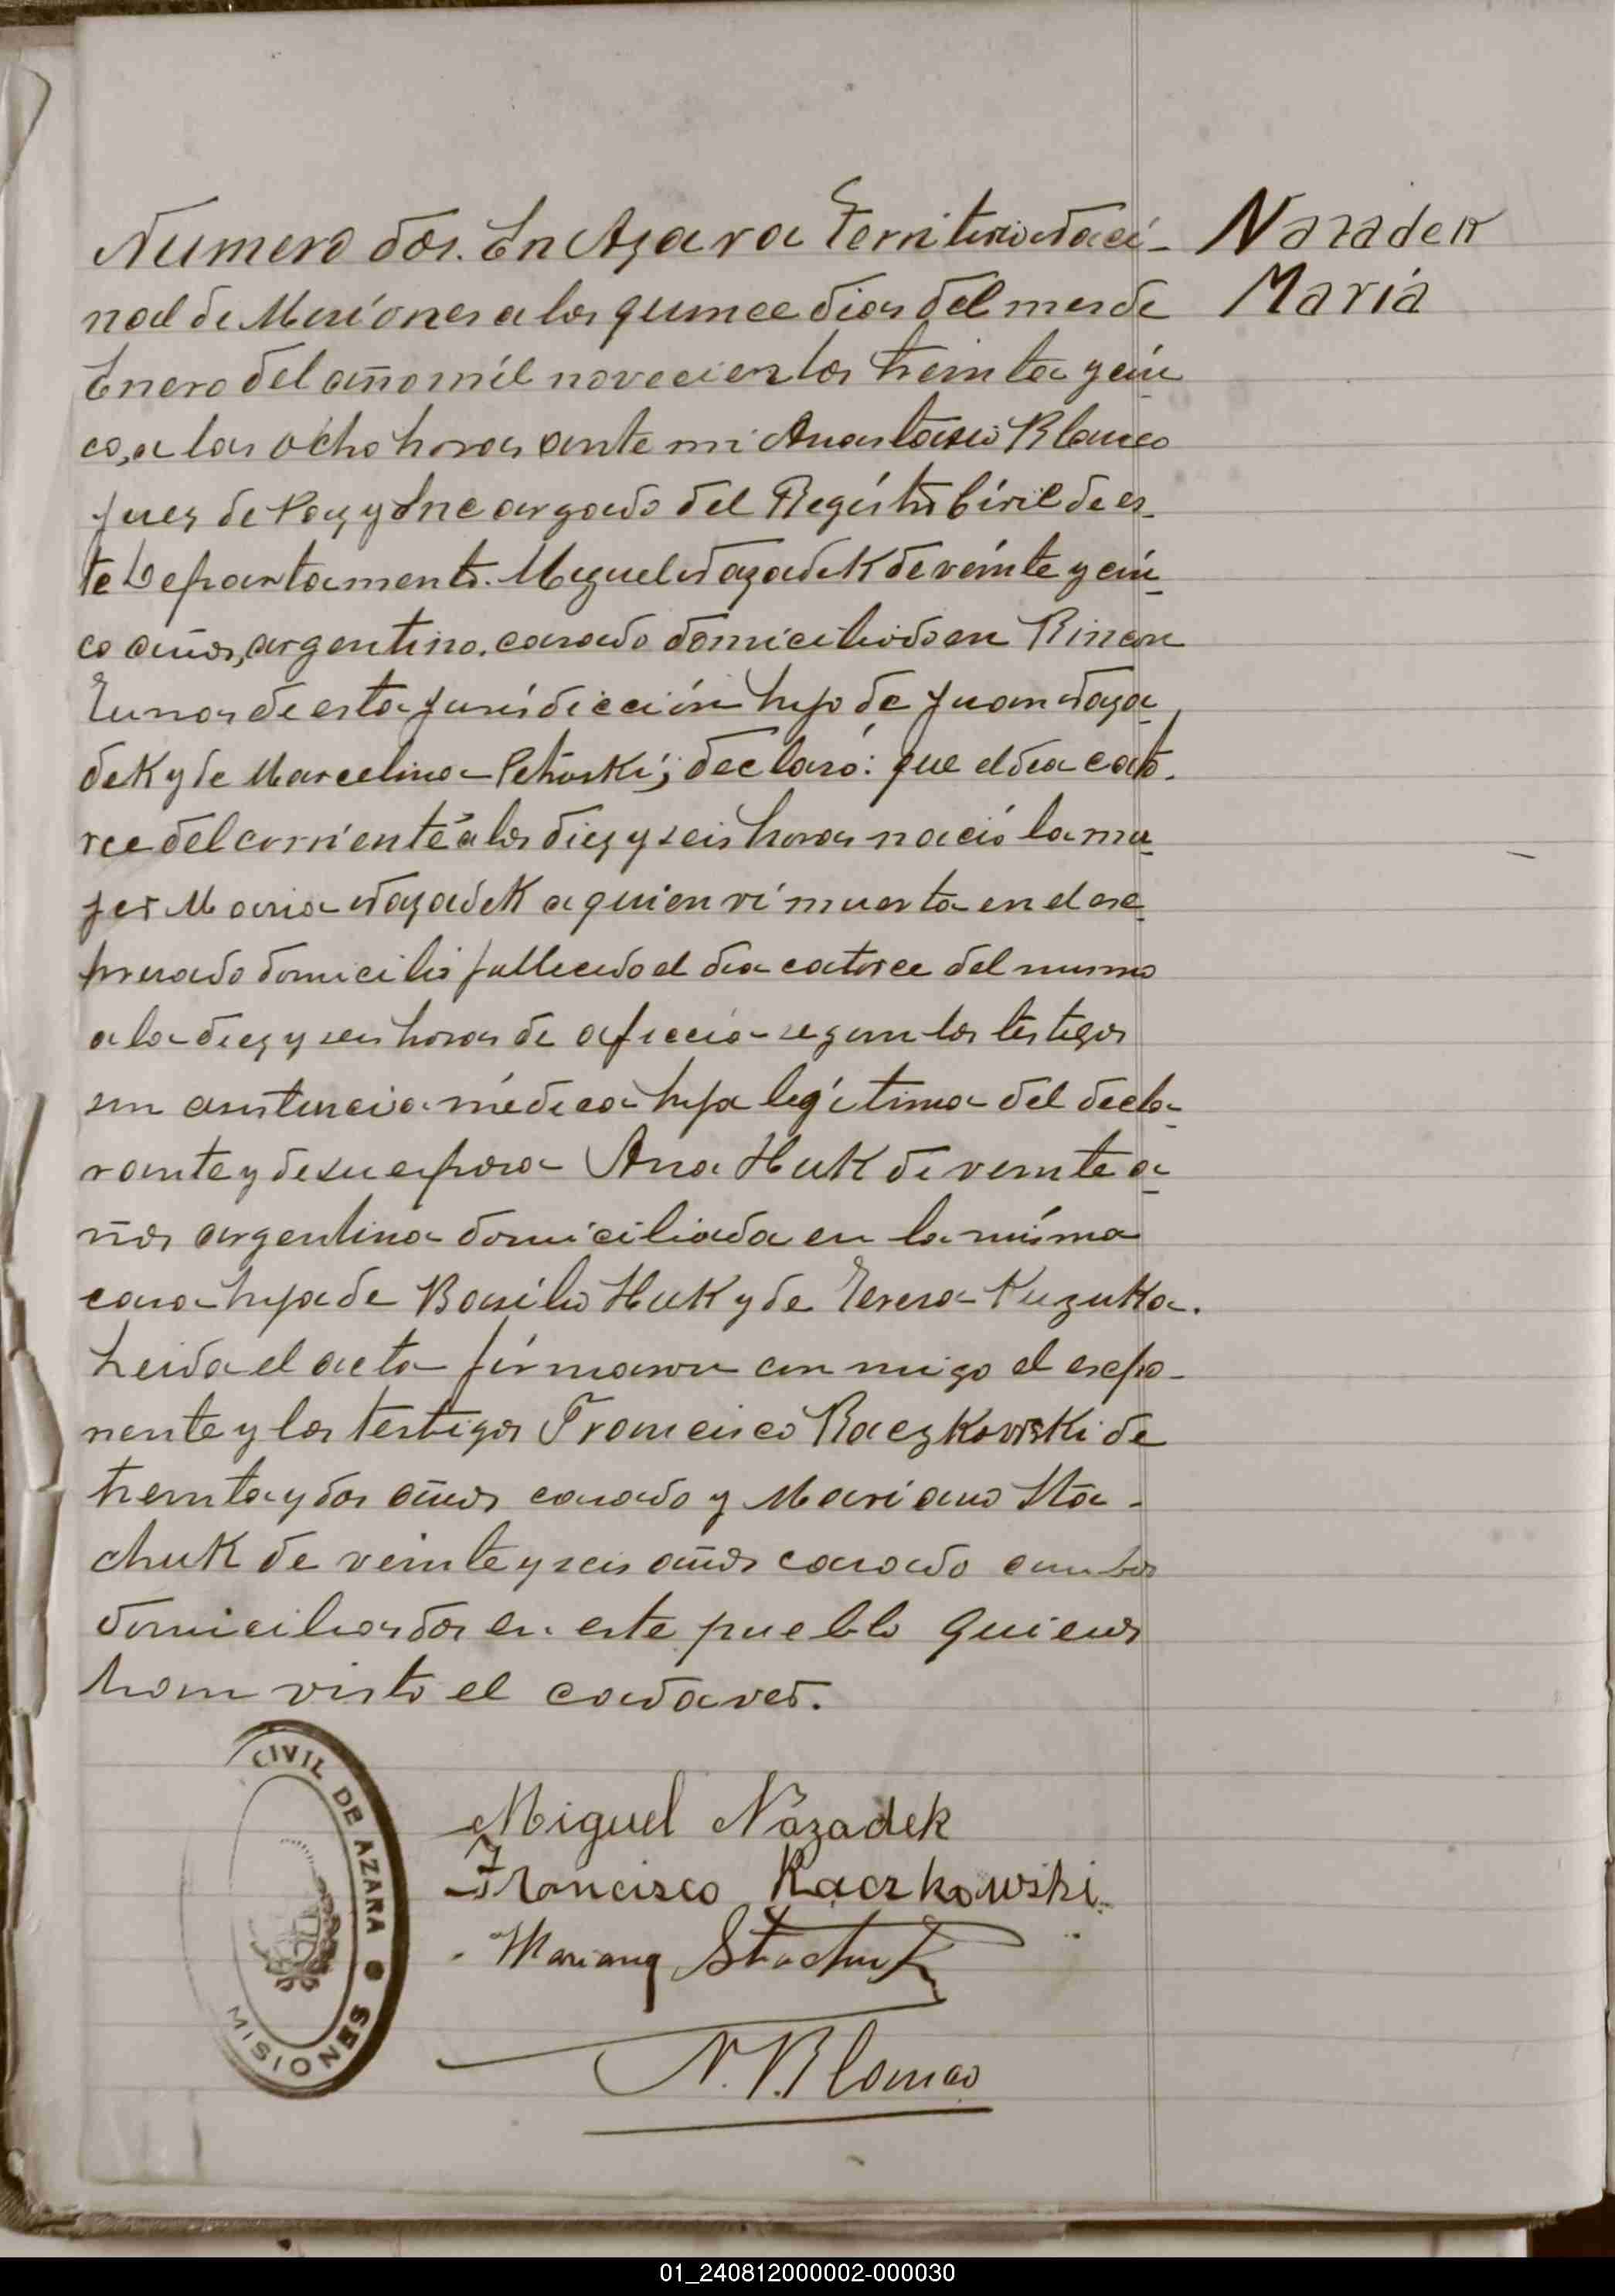 Numero dos. En Azara Territorio Naci-
nal de Misiones a los quince dias del mes de
Enero del año mil novecientos treinta y cin
co, a las ocho horas ante mi Anastasio Blanco
Juez de Paz y Encargado del Registro Civil de es-
te Departamento. Miguel Nazadek de veinte y cin
co años, argentino, casado domiciliado en Rincon
Tunas de esta jurisdicción hijo de Juan Naza
dek y de Marcelina Petroski; declaró: que el dia cato-
rce del corriente a las diez y seis horas nació la mu
jer Maria Nazadek a quien vi muerta en el ex
presado domicilio fallecido el dia catorce del mismo
a la diez y seis horas de afixia segun los testigos
sin asistencia médica hija legítima del decla-
rante y de su esposa Ana Huk de veinte a
ños argentina domiciliada en la misma
casa hija de Basilio Huk y de Teresa Kuzuka.
Leida el acta firmaron con migo el expo-
nente y los testigos Francisco Raczkowski de
treinta y dos años casado y Mariano Sta-
chuk de veinte y seis años casado ambos
domiciliados en este pueblo quienes
han visto el cadaver.
Nazadek
María
CIVIL DE AZARA
MISIONES
Miguel Nazadek
Francisco Raczkowski
Mariano Stachuk
A. Blanco
01_240812000002-000030